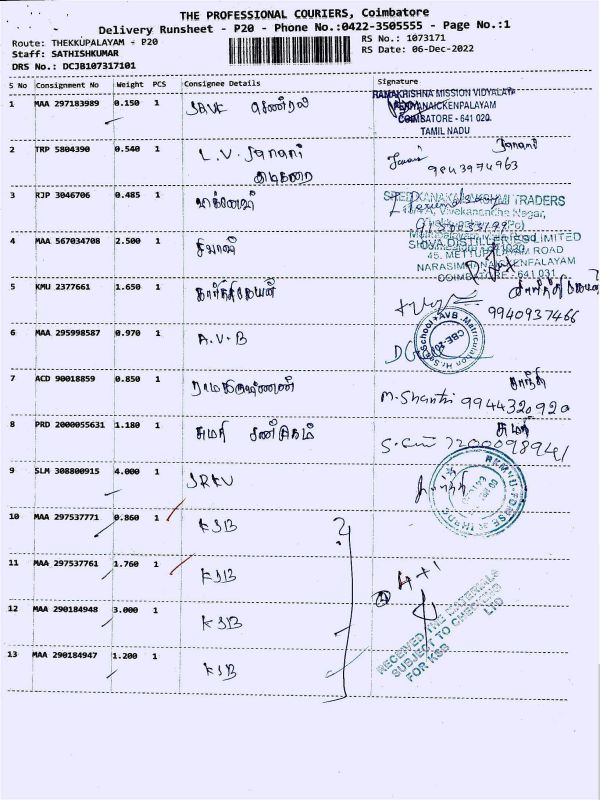 THE PROFESSIONAL COURIERS, Coimbatore
Delivery Runsheet - P20 - Phone No.:0422-3505555 - Page No.:1
Route: THEKKUPALAYAM - P20
RS No.: 1073171
Staff: SATHISHKUMAR
RS Date: 06-Dec-2022
DRS No.: DCJB107317101
S No Consignment No Weight PCS Consignee Details Signature
1 MAA 297183989 0.150 1
RAMAKRISHNA MISSION VIDYALAYA
COIMBATORE - 641 020.
TAMIL NADU
2 TRP 5804390 0.540 1 L.V. Janani Janani
9843974963
3 RJP 3046706 0.485 1
TRADERS
4 MAA 567034708 2.500 1
SHIVA DISTILLERIES LIMITED
45, METTUPALAYAM ROAD
NARASIMHANAICKENPALAYAM
COIMBATORE - 641 031
5 KMU 2377661 1.650 1 கார்த்திகேயன்
9940937466
6 MAA 295998587 0.970 1 A.V.B
7 ACD 90018859 0.850 1 ராமகிருஷ்ணன் சாந்தி
M. Shanthi 9944320920
8 PRD 2000055631 1.180 1 குமரி
7200098941
9 SLM 308800915 4.000 1 SRKV
10 MAA 297537771 0.860 1 KSB
11 MAA 297537761 1.760 1 KSB
4+1
12 MAA 290184948 3.000 1 KSB
RECEIVED THE MATERIALS
SUBJECT TO CHECKING
FOR KSB LTD
13 MAA 290184947 1.200 1 KSB